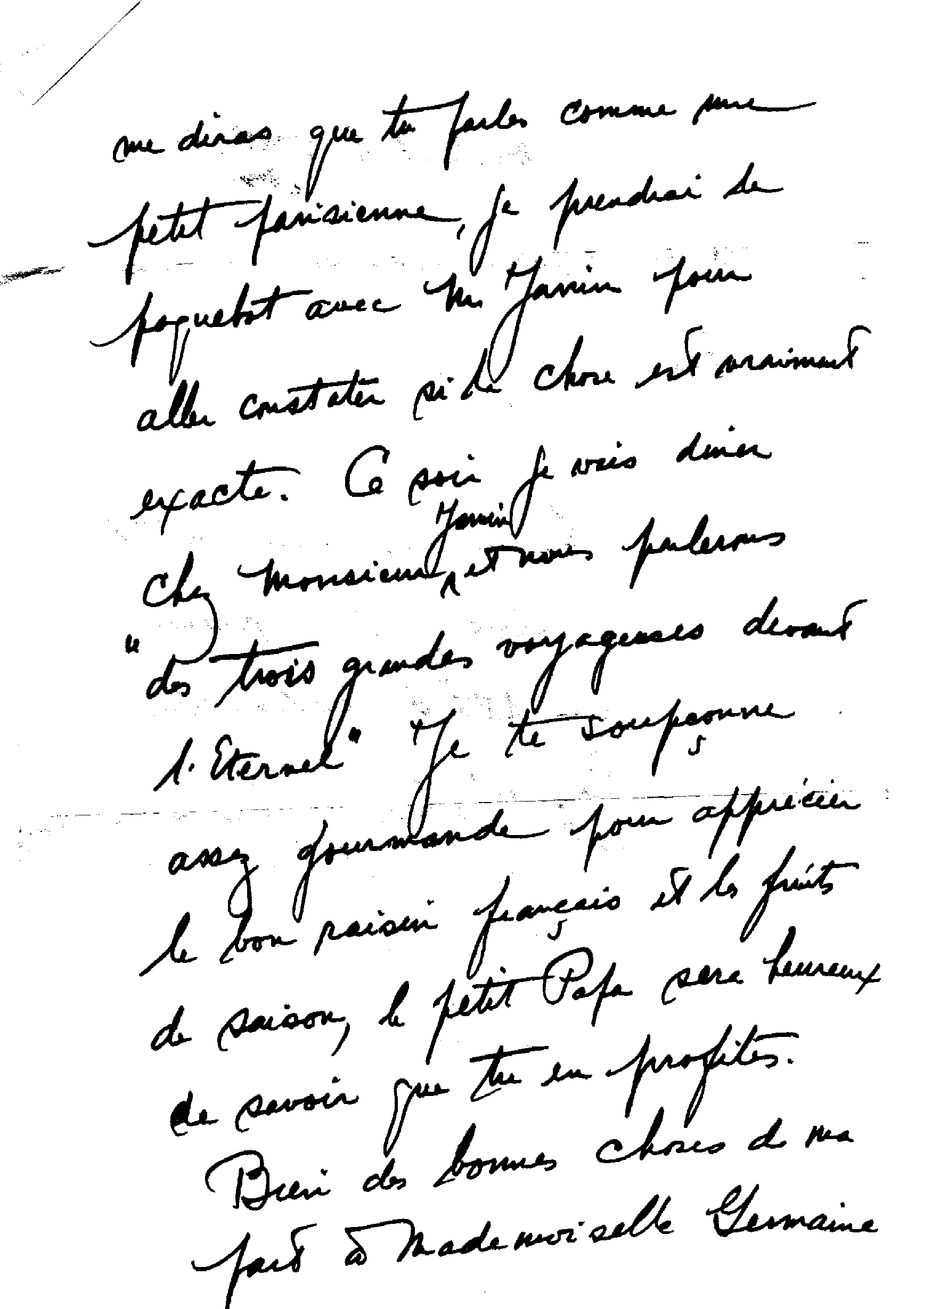 me diras que tu parles comme une
petit parisienne, je prendrai le
paquebot avec M. Janin pour
aller constater si la chose est vraiment
exacte. Ce soir je vais diner
chez Monsieur Janin et nous parlerons
"des trois grandes voyageuses devant
l'Eternel" Je te soupçonne
assez gourmande pour apprécier
le bon raisin français et les fruits
de saison, le petit Papa sera heureux
de savoir que tu en profites.
Bien des bonnes choses de ma
part à Mademoiselle Germaine